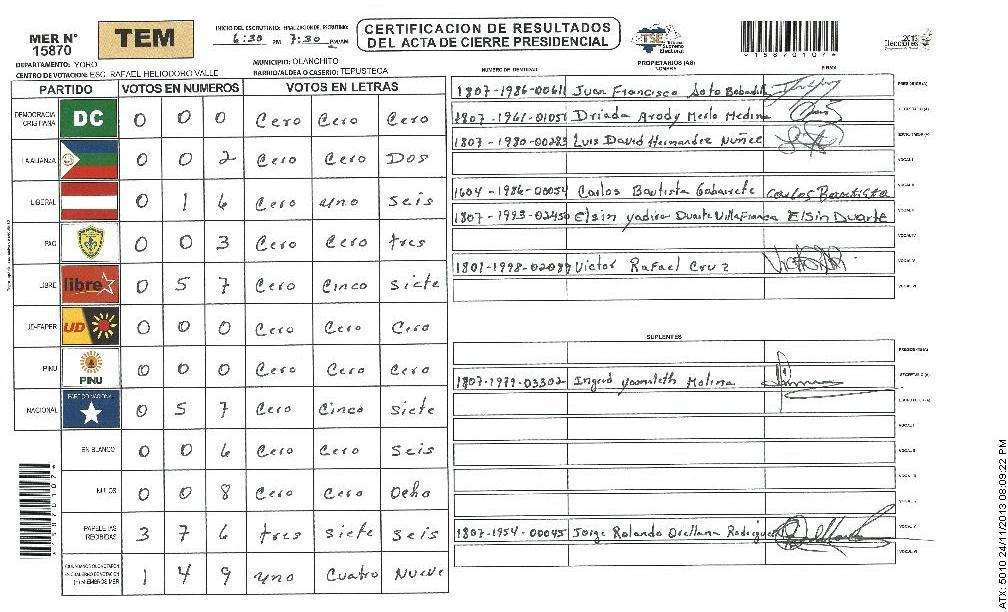 MER Nº 15870
TEM
INICIO DEL ESCRUTINIO: 6:30 PM FINALIZACION DE ESCRUTINIO: 7:30 PM/AM
CERTIFICACION DE RESULTADOS
DEL ACTA DE CIERRE PRESIDENCIAL
TSE
Tribunal Supremo Electoral
15870107
2013
Elecciones
DEPARTAMENTO: YORO
MUNICIPIO: OLANCHITO
CENTRO DE VOTACION: ESC. RAFAEL HELIODORO VALLE
BARRIO/ALDEA O CASERIO: TEPUSTECA
PARTIDO VOTOS EN NUMEROS VOTOS EN LETRAS
DEMOCRACIA CRISTIANA DC 0 0 0 Cero Cero Cero
LA ALIANZA 0 0 2 Cero Cero Dos
LIBERAL 0 1 6 Cero uno Seis
PAC 0 0 3 Cero Cero tres
LIBRE libre 0 5 7 Cero Cinco Siete
UD-FAPER UD 0 0 0 Cero Cero Cero
PINU PINU 0 0 0 Cero Cero Cero
NACIONAL PARTIDO NACIONAL 0 5 7 Cero Cinco Siete
EN BLANCO 0 0 6 Cero Cero Seis
NULOS 0 0 8 Cero Cero Ocho
PAPELETAS RECIBIDAS 3 7 6 tres siete Seis
1 4 9 uno Cuatro Nueve
NUMERO DE IDENTIDAD PROPIETARIOS (AS) NOMBRE FIRMA
1807-1986-00611 Juan Francisco Soto Bobadilla PRESIDENTE(A)
1807-1961-01051 Driada Arody Merlo Medina SECRETARIO (A)
1807-1980-00283 Luis David Hernandez Nuñez ESCRUTADOR (A)
VOCAL I
1604-1986-00054 Carlos Bautista Gabarrete Carlos Bautista VOCAL II
1807-1993-02450 Elsin yadira Duarte Villafranca Elsin Duarte VOCAL III
VOCAL IV
1807-1998-02087 Victor Rafael Cruz VOCAL V
VOCAL VI
SUPLENTES
PRESIDENTE(A)
1807-1979-03302 Ingrid Molina SECRETARIO (A)
ESCRUTADOR (A)
VOCAL I
VOCAL II
VOCAL III
VOCAL IV
1807-1954-00045 Jorge Rolando Orellana Rodriguez VOCAL V
VOCAL VI
15870107
ATX: 5010 24/11/2013 08:09:22 PM